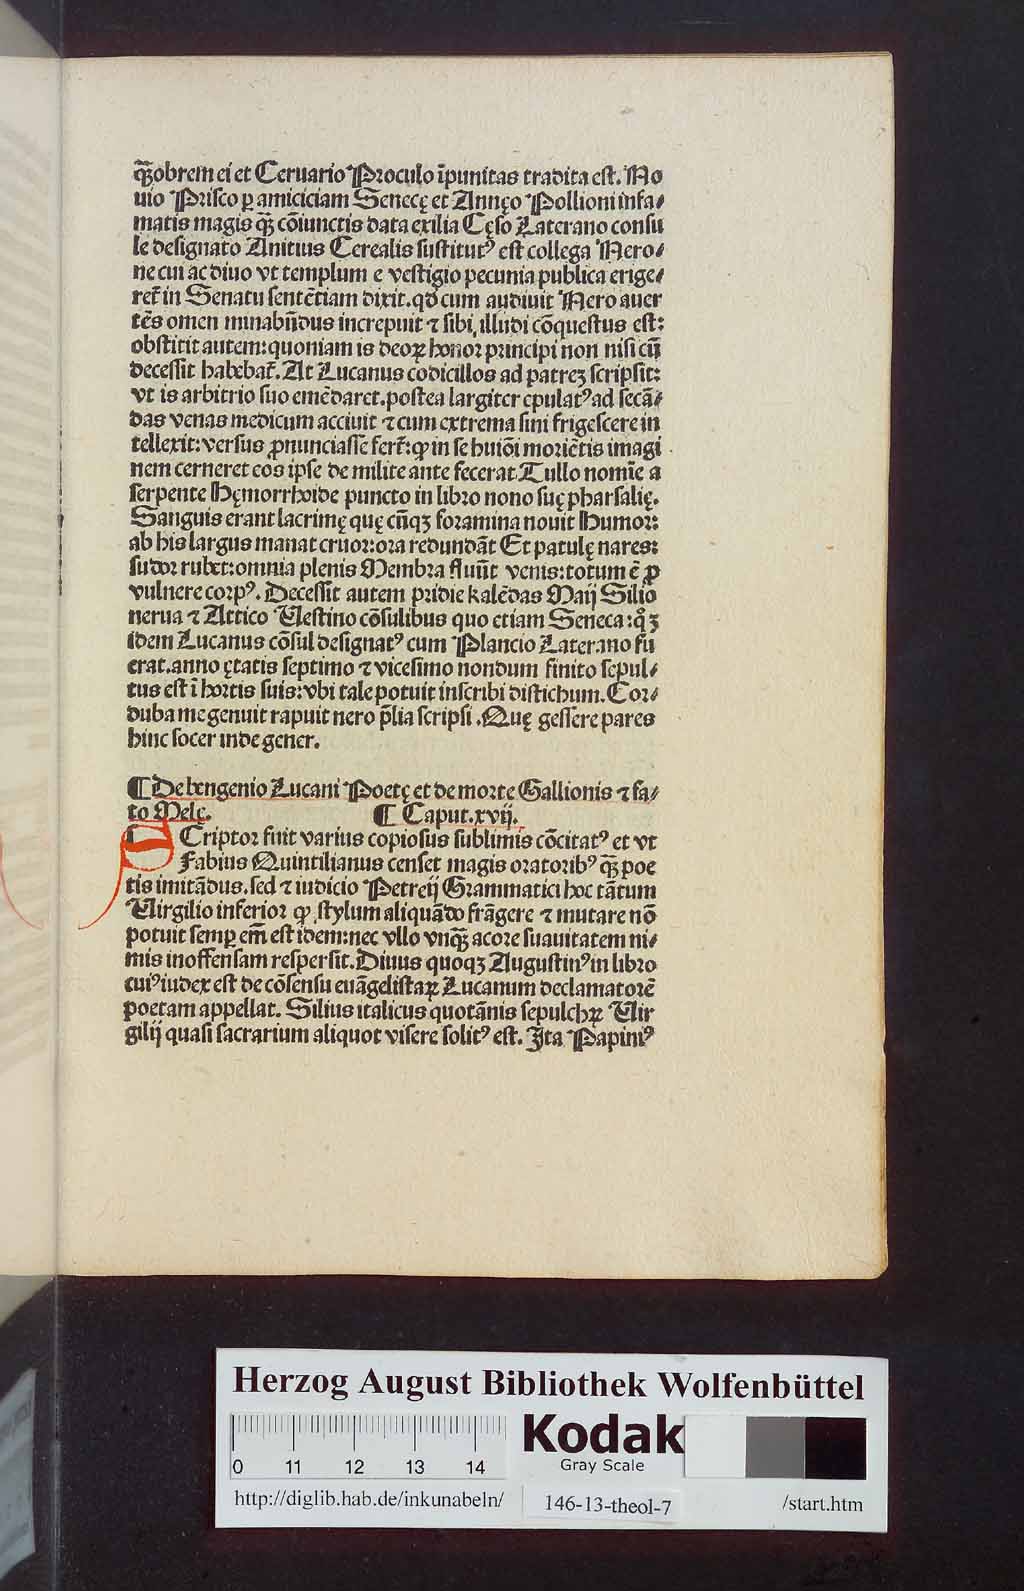 qꝫ̄obrem ei et Ceruario Proculo īpunitas tradita est. No
uio Prisco p̱ amiciciam Senecę et Annęo Pollioni infa⸗
matis magis qꝫ̄ cōiunctis data exilia Cęso Laterano consu
le designato Anitius Cerealis sustitutꝰ est collega Nero⸗
ne cui ac diuo vt templum e vestigio pecunia publica erige⸗
ret̄ in Senatu sentētiam dixit. qd̄ cum audiuit Nero auer
tēs omen minabūdus increpuit ⁊ sibi illudi cōquestus est:
obstitit autem: quoniam is deoꝝ honor principi non nisi cū
decessit habebat̄. At Lucanus codicillos ad patreꝫ scripsit:
vt is arbitrio suo emēdaret. postea largiter epulatꝰ ad secā⸗
das venas medicum acciuit ⁊ cum extrema sini frigescere in
tellexit: versus ꝓnunciasse fert̄: ꝙ in se huiōi moriētis imagi
nem cerneret eos ipse de milite ante fecerat Tullo nomīe a
serpente Hęmorrhoide puncto in libro nono suę pharsalię.
Sanguis erant lacrimę quę cūqꝫ foramina nouit Humor:
ab his largus manat cruor: ora redundāt Et patulę nares:
sudor rubet: omnia plenis Membra fluūt venis: totum ē ꝓ
vulnere corpꝰ. Decessit autem pridie kalēdas Maij Silio
nerua ⁊ Attico Uestino cōsulibus quo etiam Seneca: qͦꝫ
idem Lucanus cōsul designatꝰ cum Plancio Laterano fu
erat. anno ętatis septimo ⁊ vicesimo nondum finito sepul⸗
tus est ī hortis suis: vbi tale potuit inscribi distichum. Cor⸗
duba me genuit rapuit nero p̄lia scripsi. Quę gessere pares
hinc socer inde gener.
¶ De Ingenio Lucani Poetę et de morte Gallionis ⁊ fa⸗
to Melę. ¶ Caput. xvij.
SCriptor fuit varius copiosus sublimis cōcitatꝰ et vt
Fabius Quintilianus censet magis oratoribꝰ qꝫ̄ poe
tis imitādus. sed ⁊ iudicio Petreij Grammatici hoc tātum
Uirgilio inferior ꝙ stylum aliquādo frāgere ⁊ mutare nō
potuit semp̱ em̄ est idem: nec vllo vnqꝫ̄ acore suauitatem ni⸗
mis inoffensam respersit. Diuus quoqꝫ Augustinꝰ in libro
cuiꝰ iudex est de cōsensu euāgelistaꝝ Lucanum declamatorē
poetam appellat. Silius italicus quotānis sepulchꝝ Uir
gilij quasi sacrarium aliquot visere solitꝰ est. Ita Papiniꝰ
Herzog August Bibliothek Wolfenbüttel
Kodak
Gray Scale
0 11 12 13 14
http://diglib.hab.de/inkunabeln/ 146-13-theol-7 /start.htm